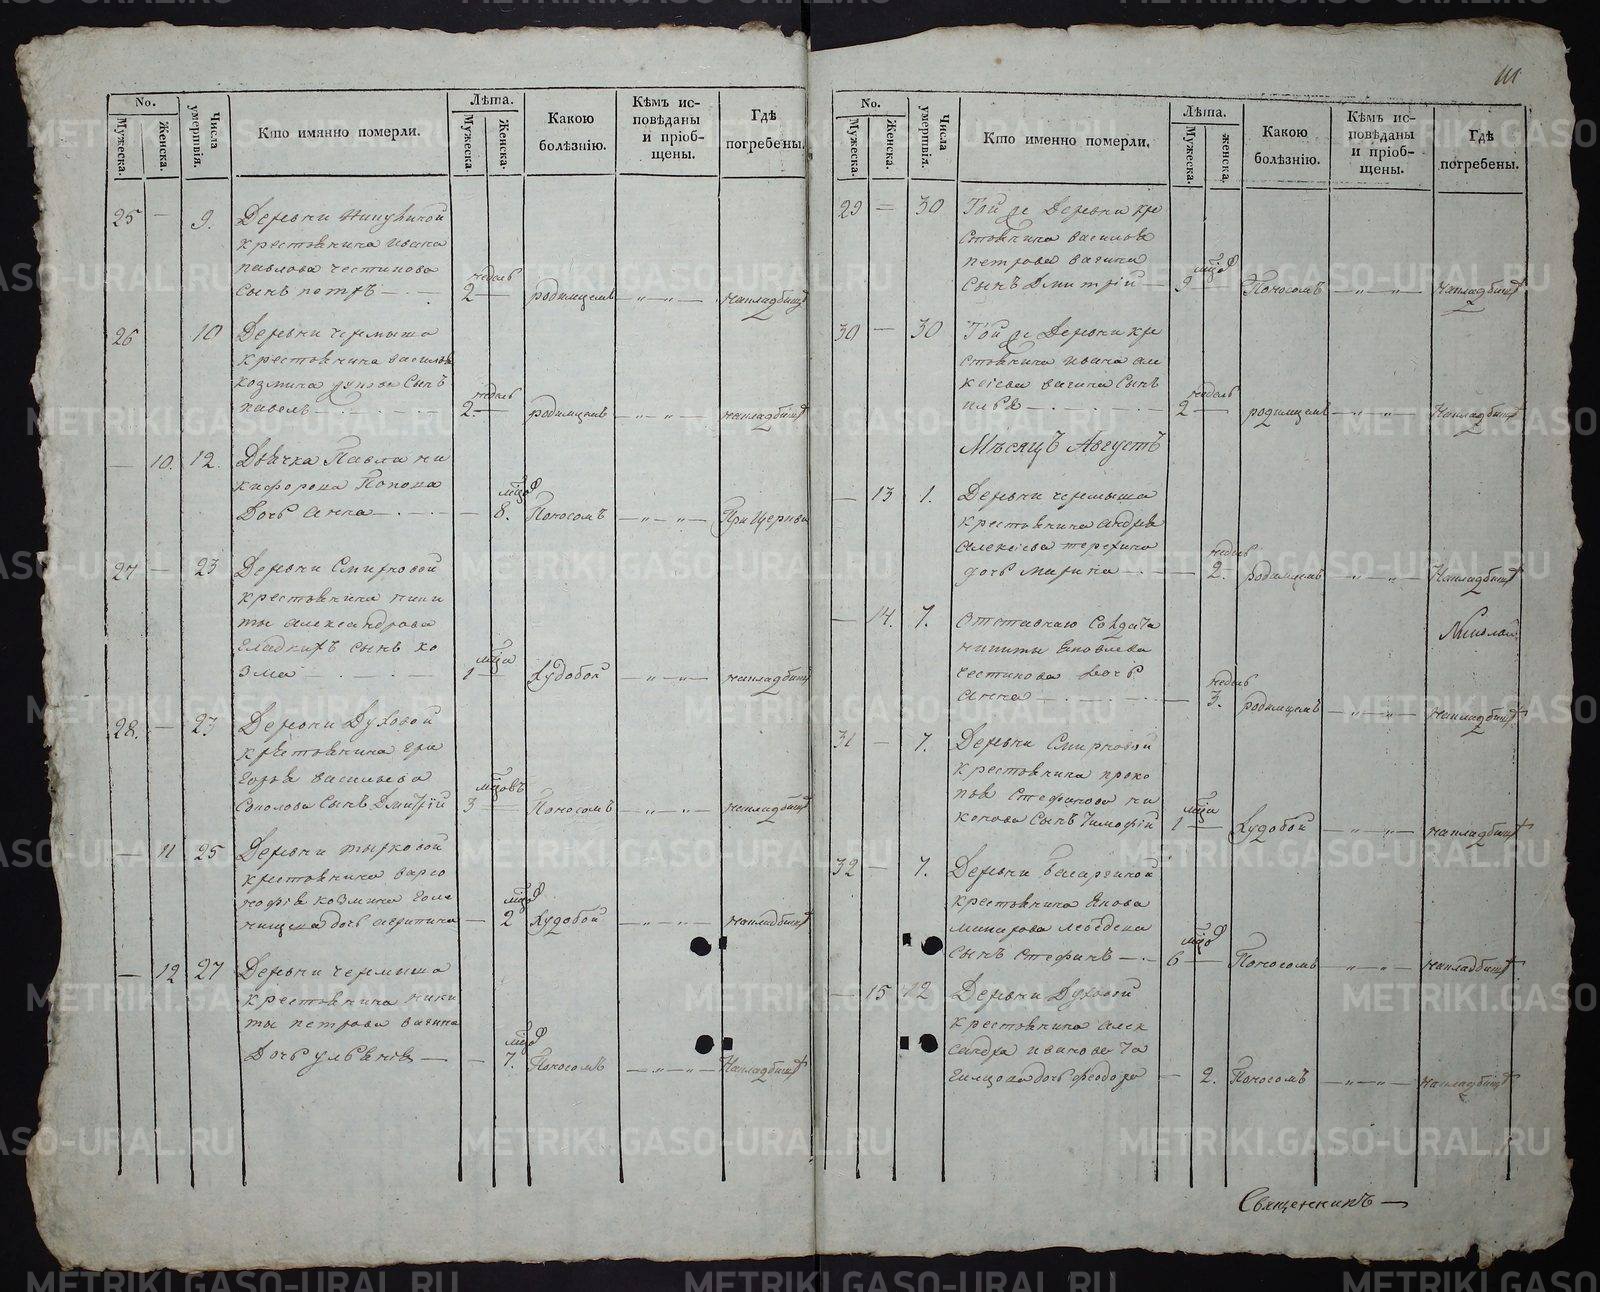 No.
Мужеска.
Женска.
Числа умертвія.
Кто имянно померли.
Лѣта.
Мужеска.
Женска.
Какою болѣзнію.
Кѣмъ исповѣданы и пріобщены.
Где погребены.
25 — 9. Деревни
крестьянина Ивана
павлова честикова недель
сынъ петръ — 2 — родимцемъ — „ — „ — накладбищѣ
26 10 Деревни черемыша
крестьянина василья
козмина сынъ недель
павелъ — 2 — родимцемъ — „ — „ — накладбищѣ
— 10. 12. Дьячка Павла ни
кифорова Попова мцовъ
дочь Анна — 8. Поносомъ — „ — „ — При Церкви
27 — 23 Деревни Смирновой
крестьянина ники
ты александрова
Гладкихъ сынъ ко мца
зма — 1 — худобой — „ — „ — накладбищѣ
28. — 23 Деревни Духовой
крестьянина
Егорья васильева мцовъ
Соколова Сынъ Дмитрій 3 Поносомъ — „ — „ — накладбищѣ
— 11 25 Деревни тырковой
крестьянина варѳо
козмина мцовъ
дочь — 2 худобой — „ — „ — накладбищѣ
— 12 27 Деревни черемыша
крестьянина ники
ты петрова вагина мцовъ
Дочь ульянія — 7. Поносомъ — „ — „ — Накладбищѣ
No.
Мужеска.
Женска.
Числа умертвія.
Кто именно померли.
Лѣта.
Мужеска.
женска.
Какою болѣзнію.
Кѣмъ исповѣданы и пріобщены.
Гдѣ погребены.
29 = 30 Той же Деревни кре
стьянина василья
петрова вагина мцовъ
сынъ Дмитрій — 9 — Поносомъ — „ — „ — накладбищѣ
30 — 30 Той же Деревни кре
стьянина Ивана але
ксіева вагина Сынъ недель
илья — 2 — родимцемъ — „ — „ — Накладбищѣ
Мѣсяцъ Августъ
— 13 1. Деревни черемыша
крестьянина андрея
Алексіева терехина недель
дочь марина — 2. родимцемъ — „ — „ — Накладбищѣ
— 14. 7. Отставнаго Солдата Николай
никиты Яковлева
честикова дочь недель
анна — 3. родимцемъ — „ — „ — накладбищѣ
31 — 7. Деревни Смирновой
крестьянина проко
пья Стефанова ни мца
конова Сынъ Тимофій 1 — худобой — „ — „ — накладбищѣ
32 — 7. Деревни басаргиной
крестьянина Якова
макарова лебедева мцовъ
сынъ стефанъ — 6 — Поносомъ — „ — „ — накладбищѣ
— 15 12 Деревни Духовой
крестьянина алек
сандра иванова
дочь феодора — 2. Поносомъ — „ — „ — накладбищѣ
Священникъ —
METRIKI.GASO-URAL.RU